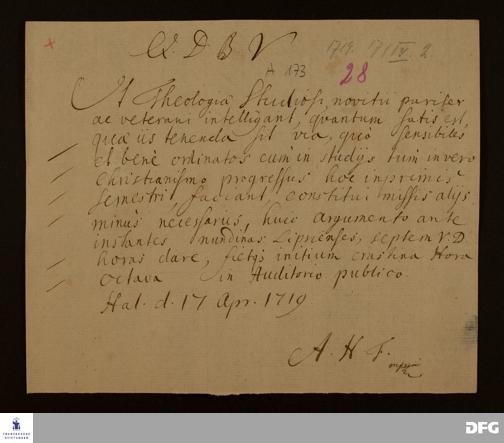 Q. D. B. V
1719. 17/IV. 2
A 173
28
Ut Theologiæ Studiosi, novitii pariter
ac veterani intelligant, quantum satis est,
quæ iis tenenda sit via, quo sensibiles
et bene ordinatos cum in studijs tum in vero
Christianismo progressus hoc inprimis
semestri faciant constitui missis alijs
minus necessariis, huic argumento ante
instantes nundinas Lipsienses, septem V. D
horas dare, fietq3 initium crastina Hora
octava in Auditorio publico.
Hal. d. 17 Apr. 1719
A. H. F.
FRANCKESCHE
STIFTUNGEN
DFG